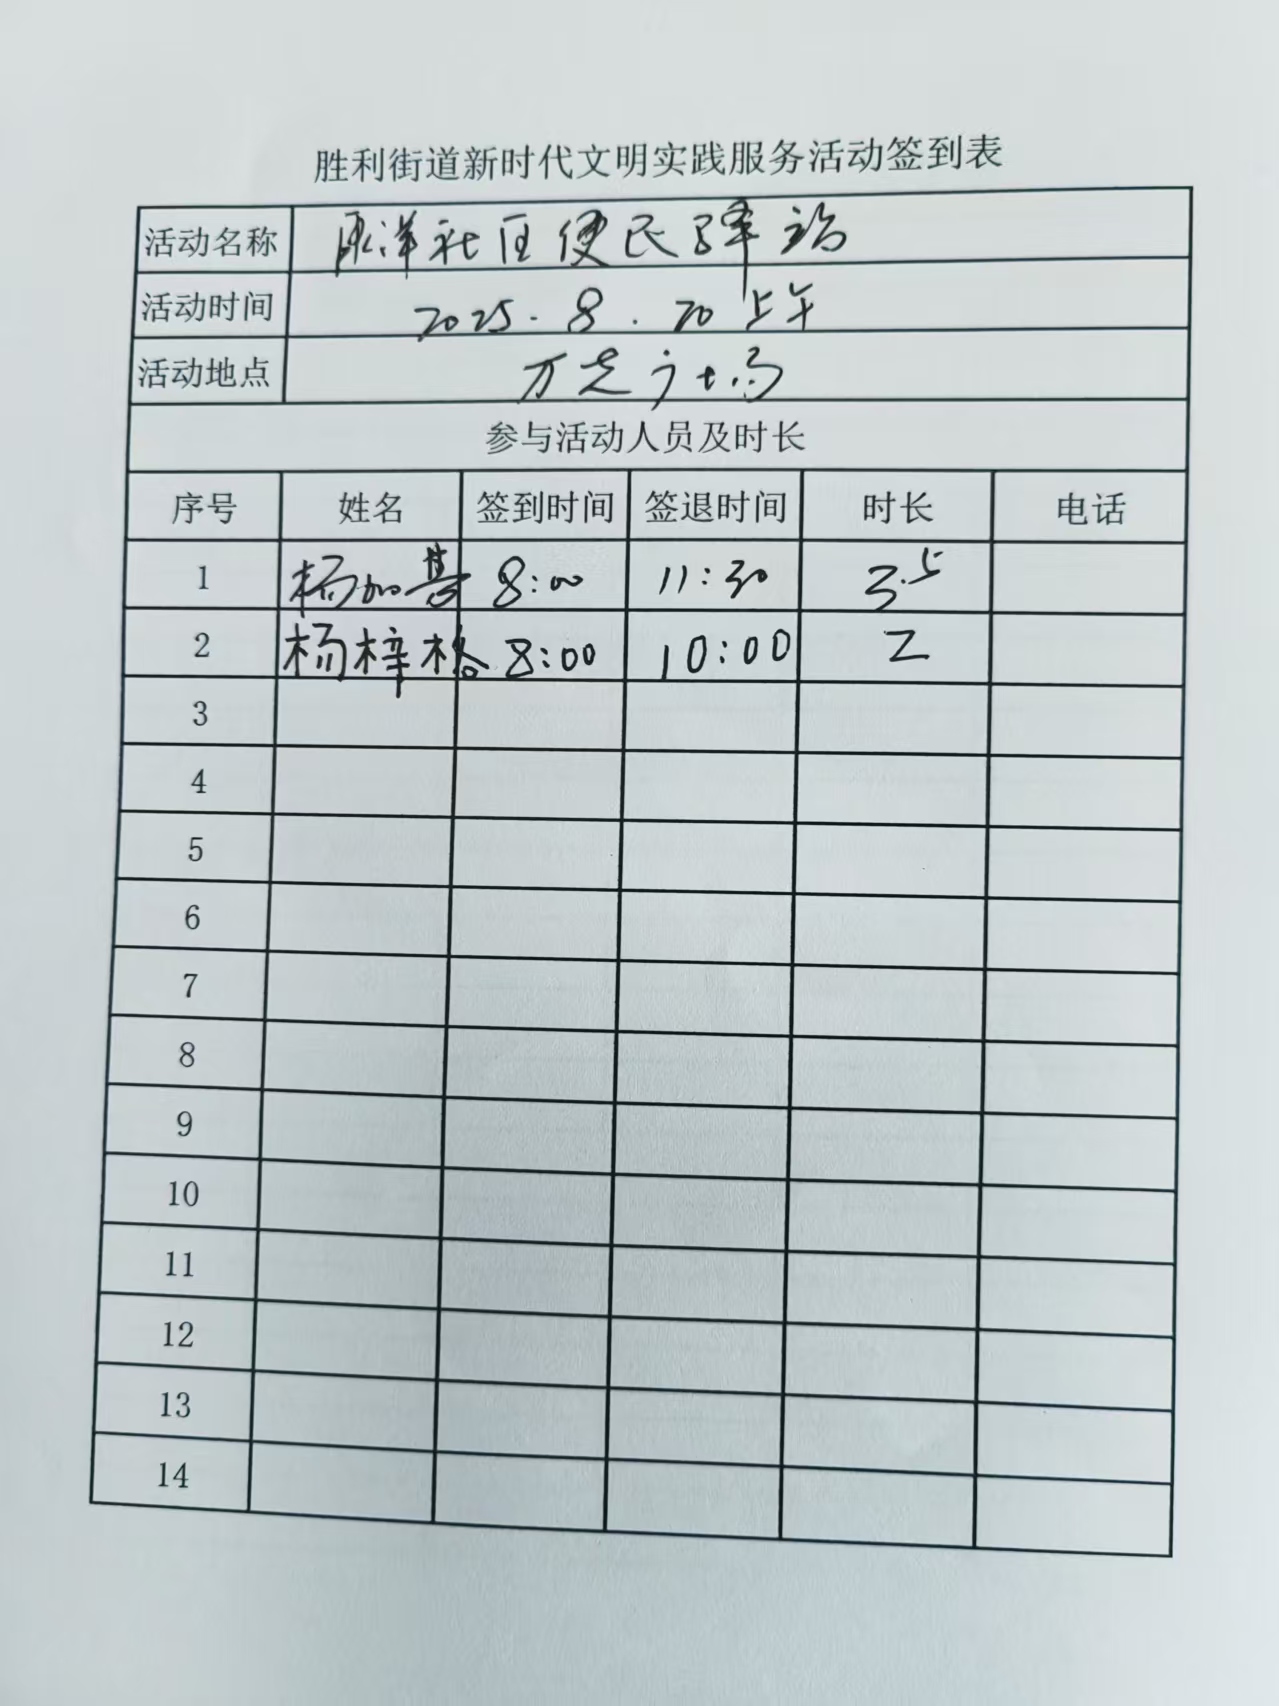 胜利街道新时代文明实践服务活动签到表
活动名称 洋社区便民驿站
活动时间 2025.8.20上午
活动地点 万达广场
参与活动人员及时长
序号 姓名 签到时间 签退时间 时长 电话
1 杨加慧 8:00 11:30 3.5
2 杨梓格 8:00 10:00 2
3
4
5
6
7
8
9
10
11
12
13
14